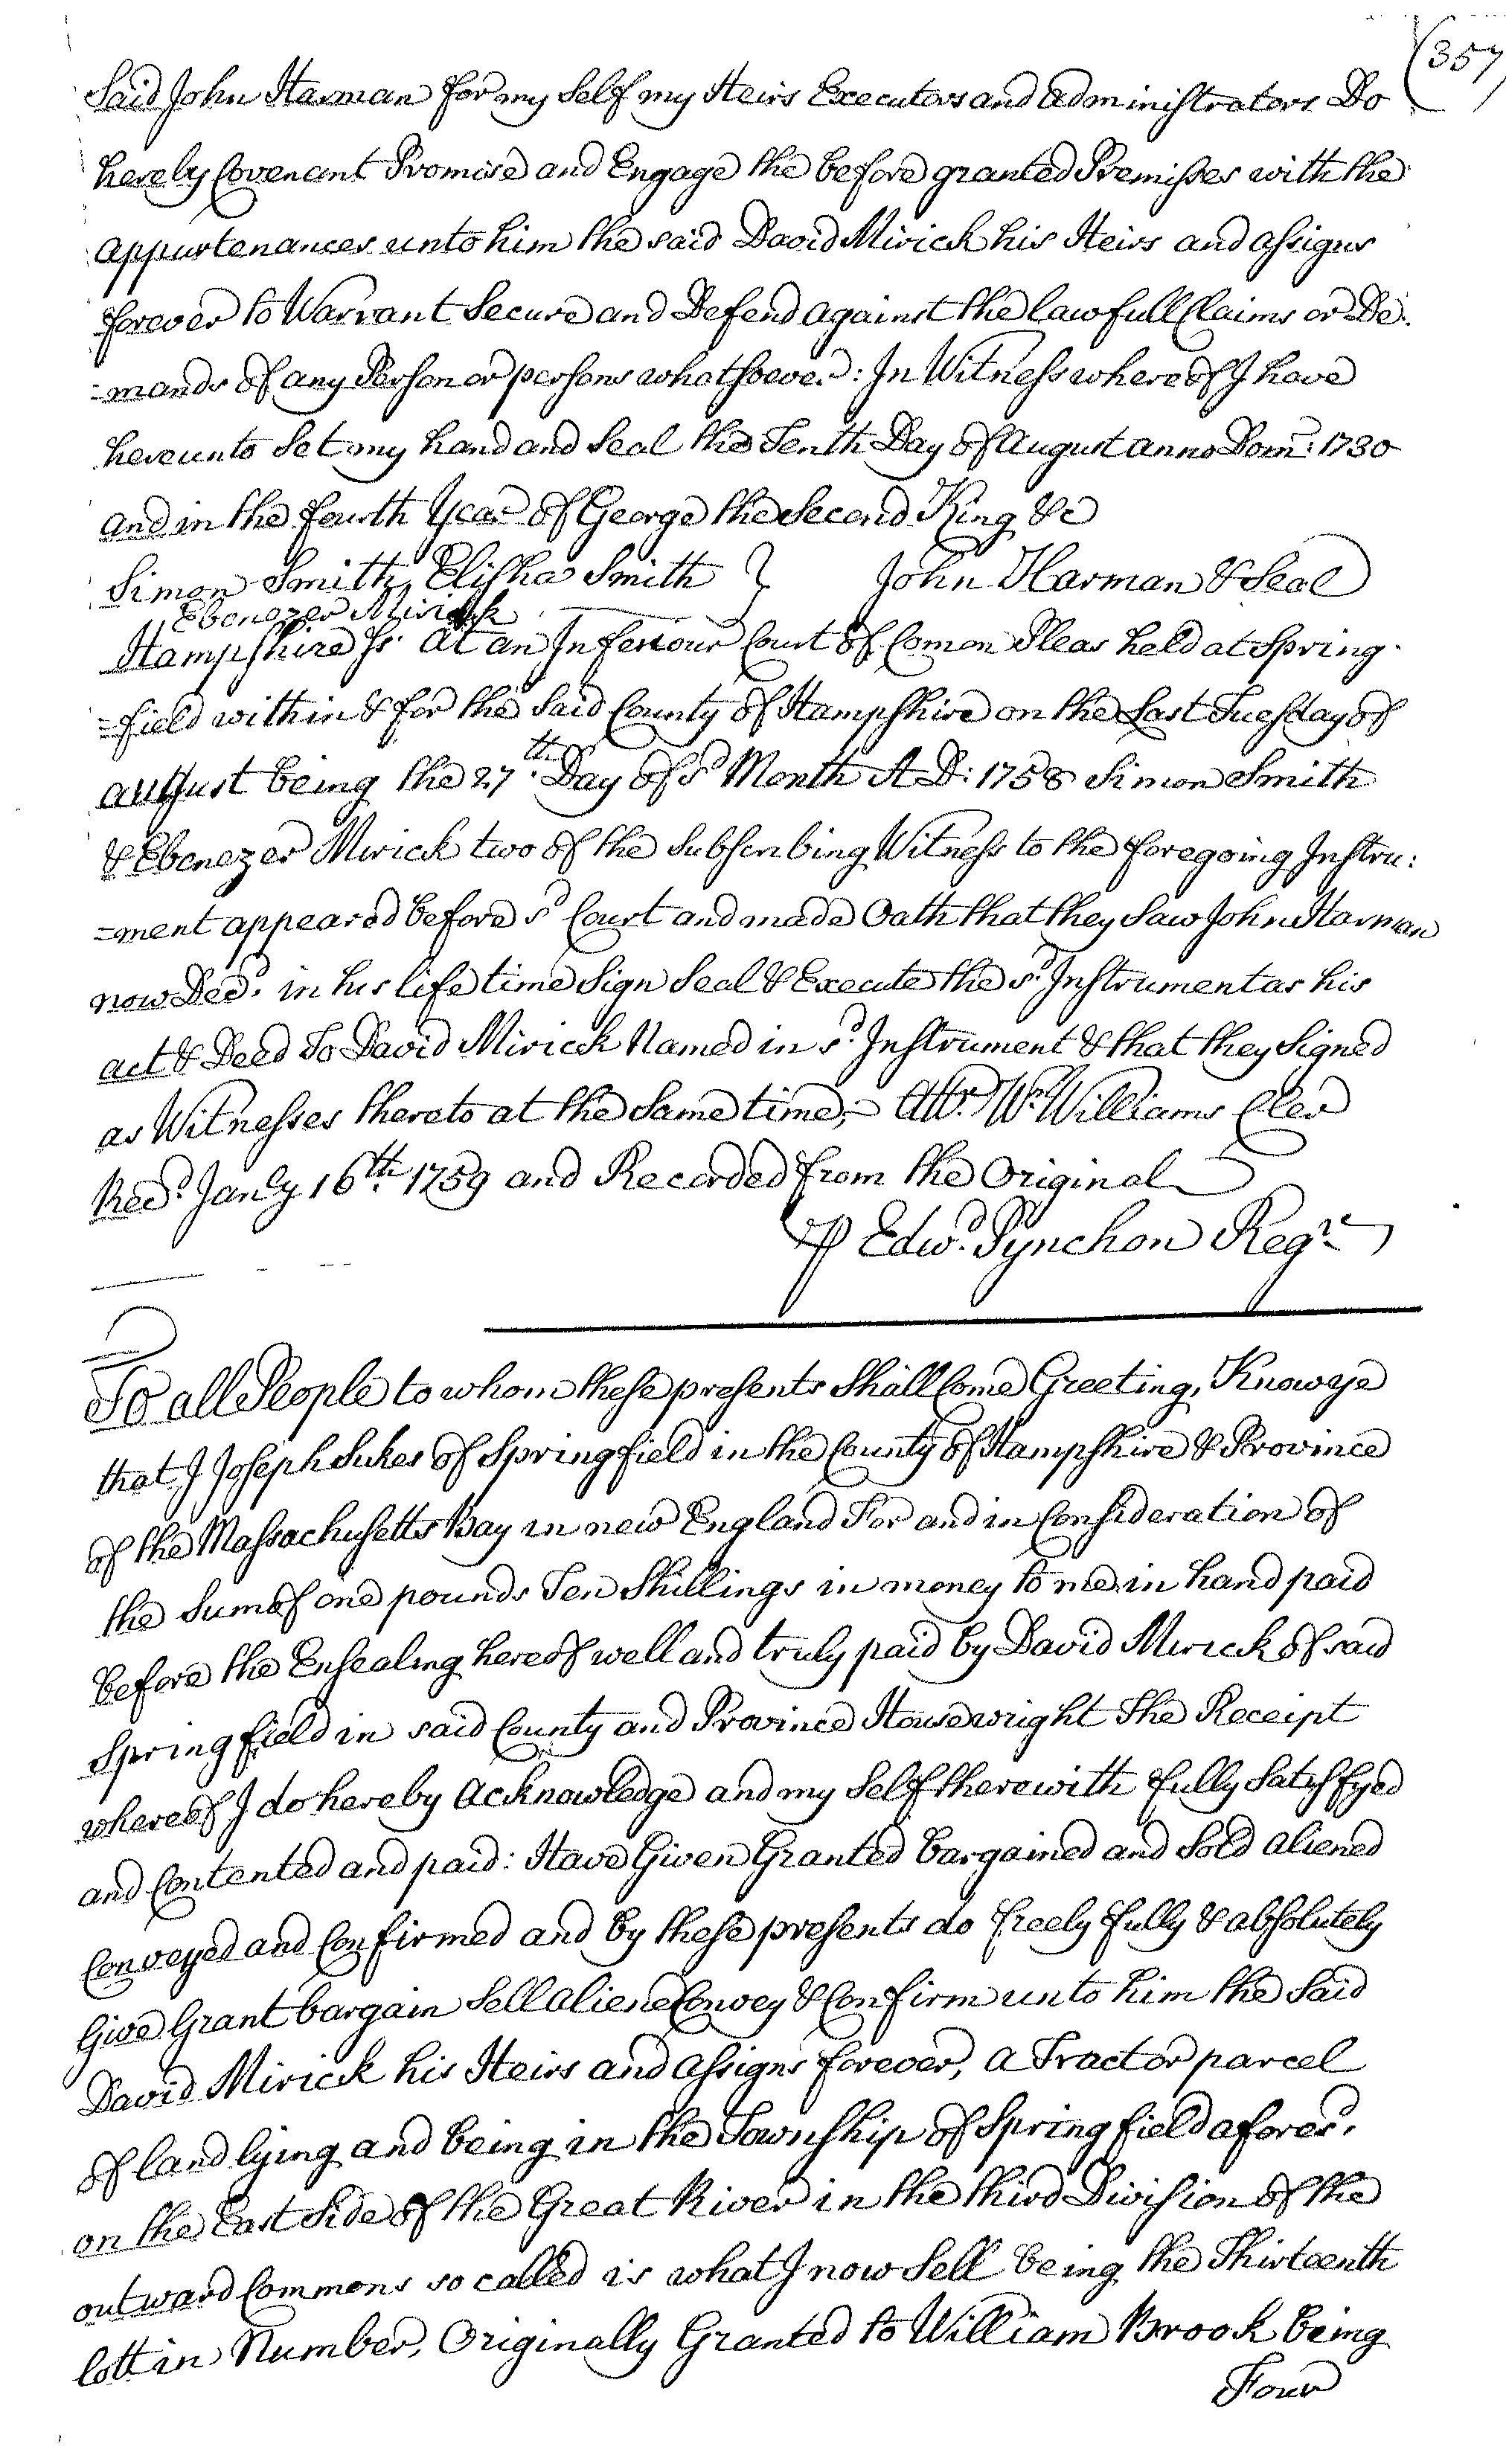 (357
Said John Harman for my Self my Heirs Executors and Administrators Do
hereby Covenant Promise and Engage the before granted Premisses with the
appurtenances unto him the said David Mirick his Heirs and assigns
forever to Warrant Secure and Defend against the lawfull Claims or De:
=mands of any Person or persons whatsoever: In Witness whereof I have
hereunto Set my hand and Seal the Tenth Day of August anno Dom: 1730
and in the fourth Year of George the Second King &c
Simon Smith, Elisha Smith } John Harman & Seal
Ebenezer Mirick
Hampshire Ss. At an Inferiour Court of Comon Pleas held at Spring-
=field within & for the Said County of Hampshire on the Last Tuesday of
august being the 27th. Day of sd Month A D: 1758 Simon Smith
& Ebenezer Mirick two of the Subscribing Witness to the foregoing Instru:
=ment appeared before sd Court and made Oath that they Saw John Harman
now Decd. in his life time Sign Seal & Execute the sd. Instrument as his
act & Deed To David Mirick Named in sd. Instrument & that they Signed
as Witnesses thereto at the Same time,- Attr. Wm. Williams Cler
Recd. Janly 16th. 1759 and Recorded from the Original
P Edwd. Pynchon Regr
To all People to whom these presents Shall Come Greeting, Know ye
that I Joseph Sikes of Springfield in the County of Hampshire & Province
of the Massachusetts Bay in new England For and in Consideration of
the Sum of one pounds Ten Shillings in money to me in hand paid
before the Ensealing hereof well and truly paid by David Mirick of said
Springfield in said County and Province Housewright The Receipt
whereof I do hereby acknowledge and my Self therewith fully Satisfyed
and Contented and paid: Have Given Granted bargained and Sold aliened
Conveyed and Confirmed and by these presents do freely fully & absolutely
Give Grant bargain Sell aliene Convey & Confirm unto him the Said
David Mirick his Heirs and assigns forever, a Tract or parcel
of land lying and being in the Township of Springfield aforesd.
on the East Side of the Great River in the third Division of the
outward Commons so called is what I now Sell being the Thirteenth
lott in Number, Originally Granted to William Brook being
Four